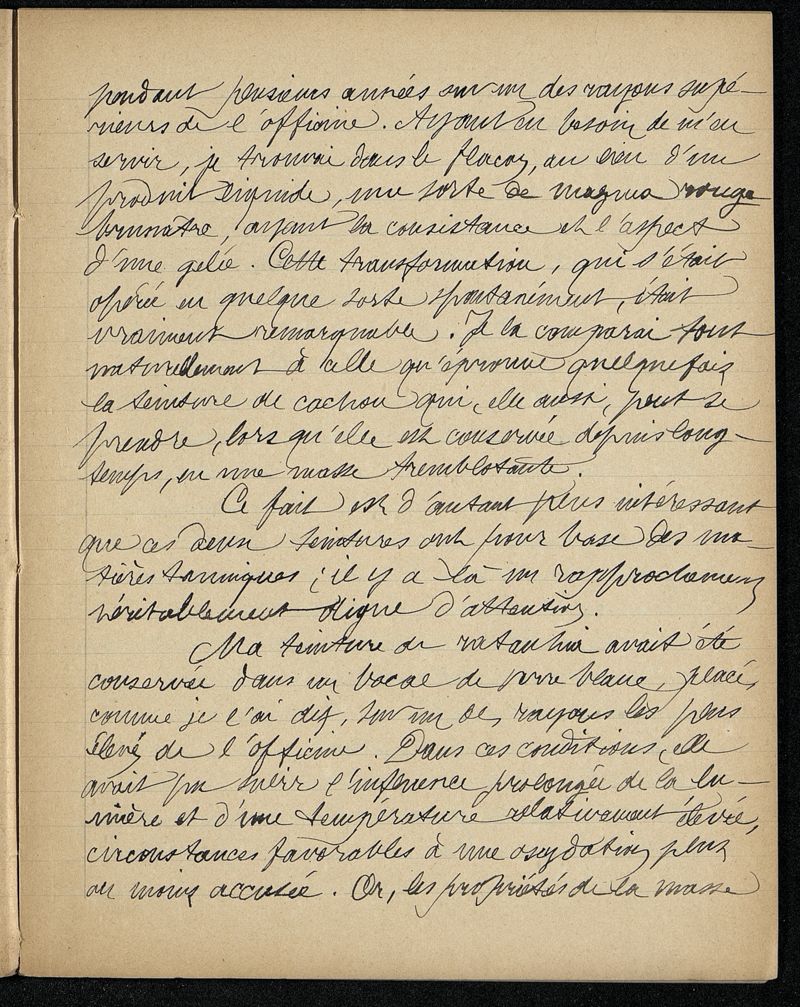 pendant plusieurs années sur un des rayons supé-
rieurs de l'officine. Ayant eu besoin de m'en
servir, je trouvai dans le flacon, au lieu d'un
produit liquide, une sorte de magma rouge
brunâtre, ayant la consistance et l'aspect
d'une gelée. Cette transformation, qui s'était
opérée en quelque sorte spontanément, était
vraiment remarquable. Je la comparai tout
naturellement à celle qu'éprouve quelquefois
la teinture de cachou qui, elle aussi, peut se
prendre, lorsqu'elle est conservée depuis long-
temps, en une masse tremblotante.
Ce fait est d'autant plus intéressant
que ces deux teintures ont pour base des ma-
tières tanniques ; il y a là un rapprochement
véritablement digne d'attention.
Ma teinture de ratanhia avait été
conservée dans un bocal de verre blanc, placé,
comme je l'ai dit, sur un des rayons les plus
élevés de l'officine. Dans ces conditions, elle
avait pu subir l'influence prolongée de la lu-
mière et d'une température relativement élevée,
circonstances favorables à une oxydation plus
ou moins accusée. Or, les propriétés de la masse